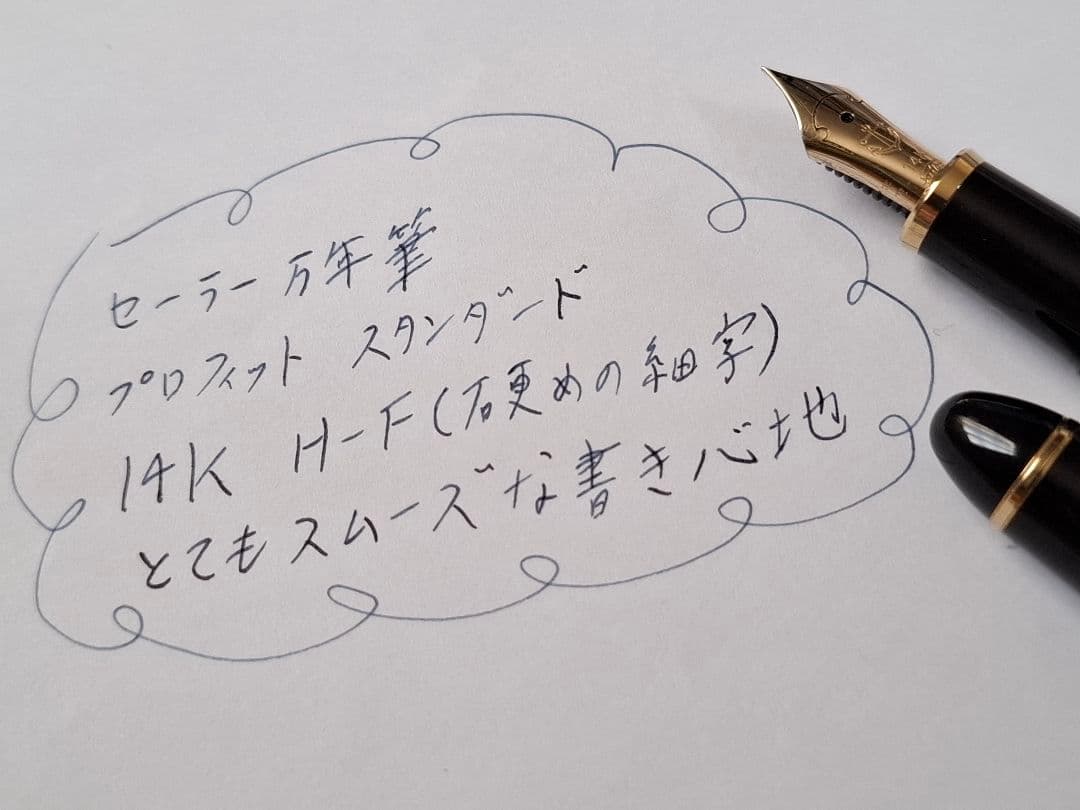 セーラー万年筆
プロフィット スタンダード
14K H-F(硬めの細字)
とてもスムーズな書き心地